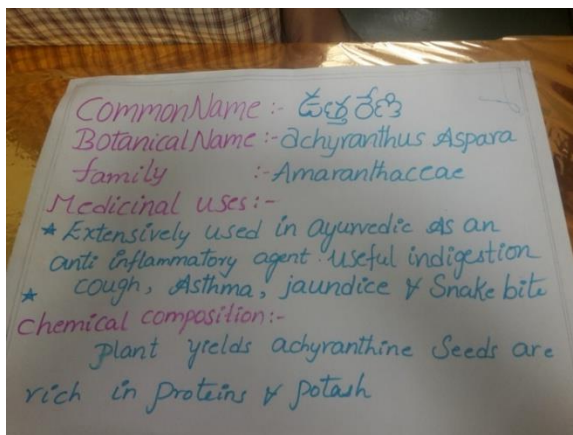 Common Name :- ఉత్తరేణి
Botanical Name :- achyranthus Aspara
family :- Amaranthaceae
Medicinal uses :-
* Extensively used in ayurvedic as an
anti inflammatory agent. useful indigestion
* cough, Asthma, jaundice & Snake bite
Chemical composition :-
plant yields achyranthine Seeds are
rich in proteins & potash